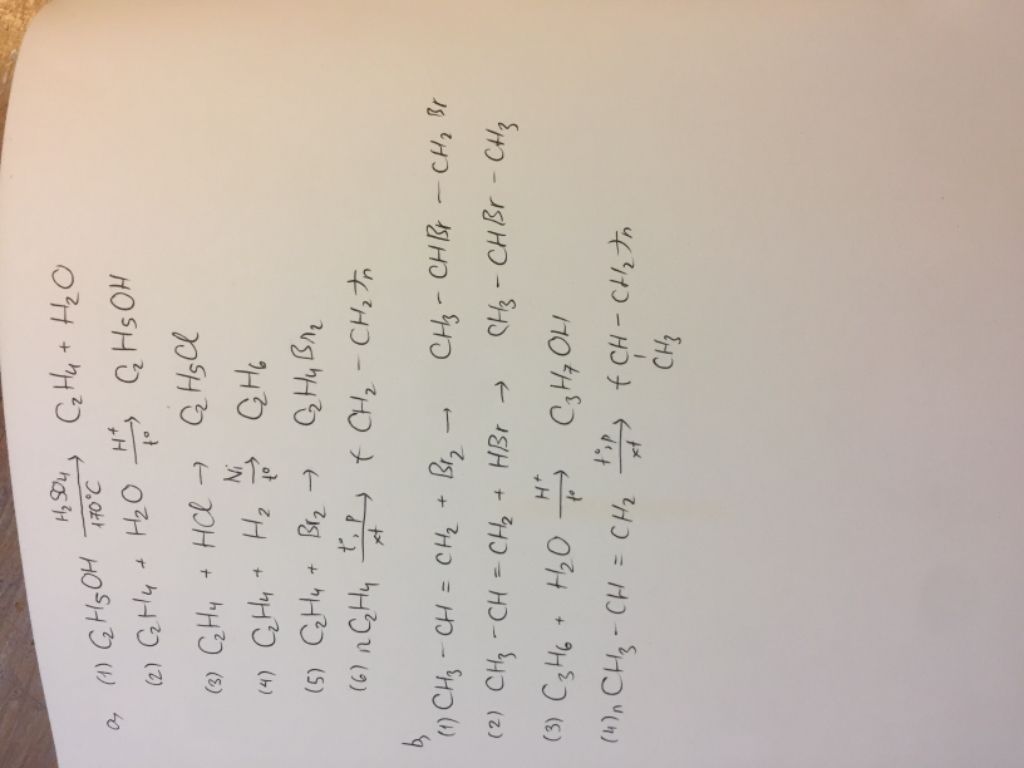 a, (1) C2H5OH \xrightarrow[170°C]{H2SO4} C2H4 + H2O
(2) C2H4 + H2O \xrightarrow[t°]{H+} C2H5OH
(3) C2H4 + HCl → C2H5Cl
(4) C2H4 + H2 \xrightarrow[t°]{Ni} C2H6
(5) C2H4 + Br2 → C2H4Br2
(6) nC2H4 \xrightarrow[xt]{t°, P} (CH2 - CH2)n
b,
(1) CH3 - CH = CH2 + Br2 → CH3 - CHBr - CH2Br
(2) CH3 - CH = CH2 + HBr → CH3 - CHBr - CH3
(3) C3H6 + H2O \xrightarrow[t°]{H+} C3H7OH
(4) nCH3 - CH = CH2 \xrightarrow[xt]{t°, P} (CH - CH2)n
CH3